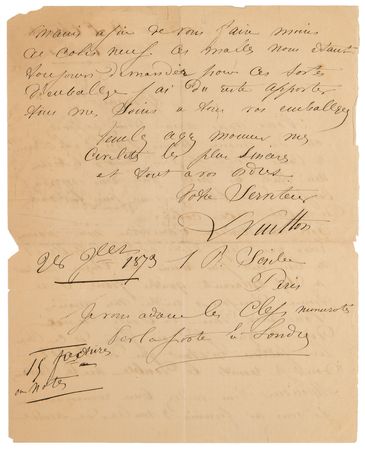 manis afin de vous faire moins
de colis neuf ces malles nous étant
toujours demandée pour ces sortes
d'embalage j'ai du reste apporter
tous mes soins a tous vos embalages
agez monsieur mes
civilités les plus sincère
et tout a vos ordres
Votre Serviteur
L Vuitton
28 1873 1 R. Scribe
Paris
Je vous adresse les Clefs numerotés
Par la poste à Londres
15 factures
ou notes